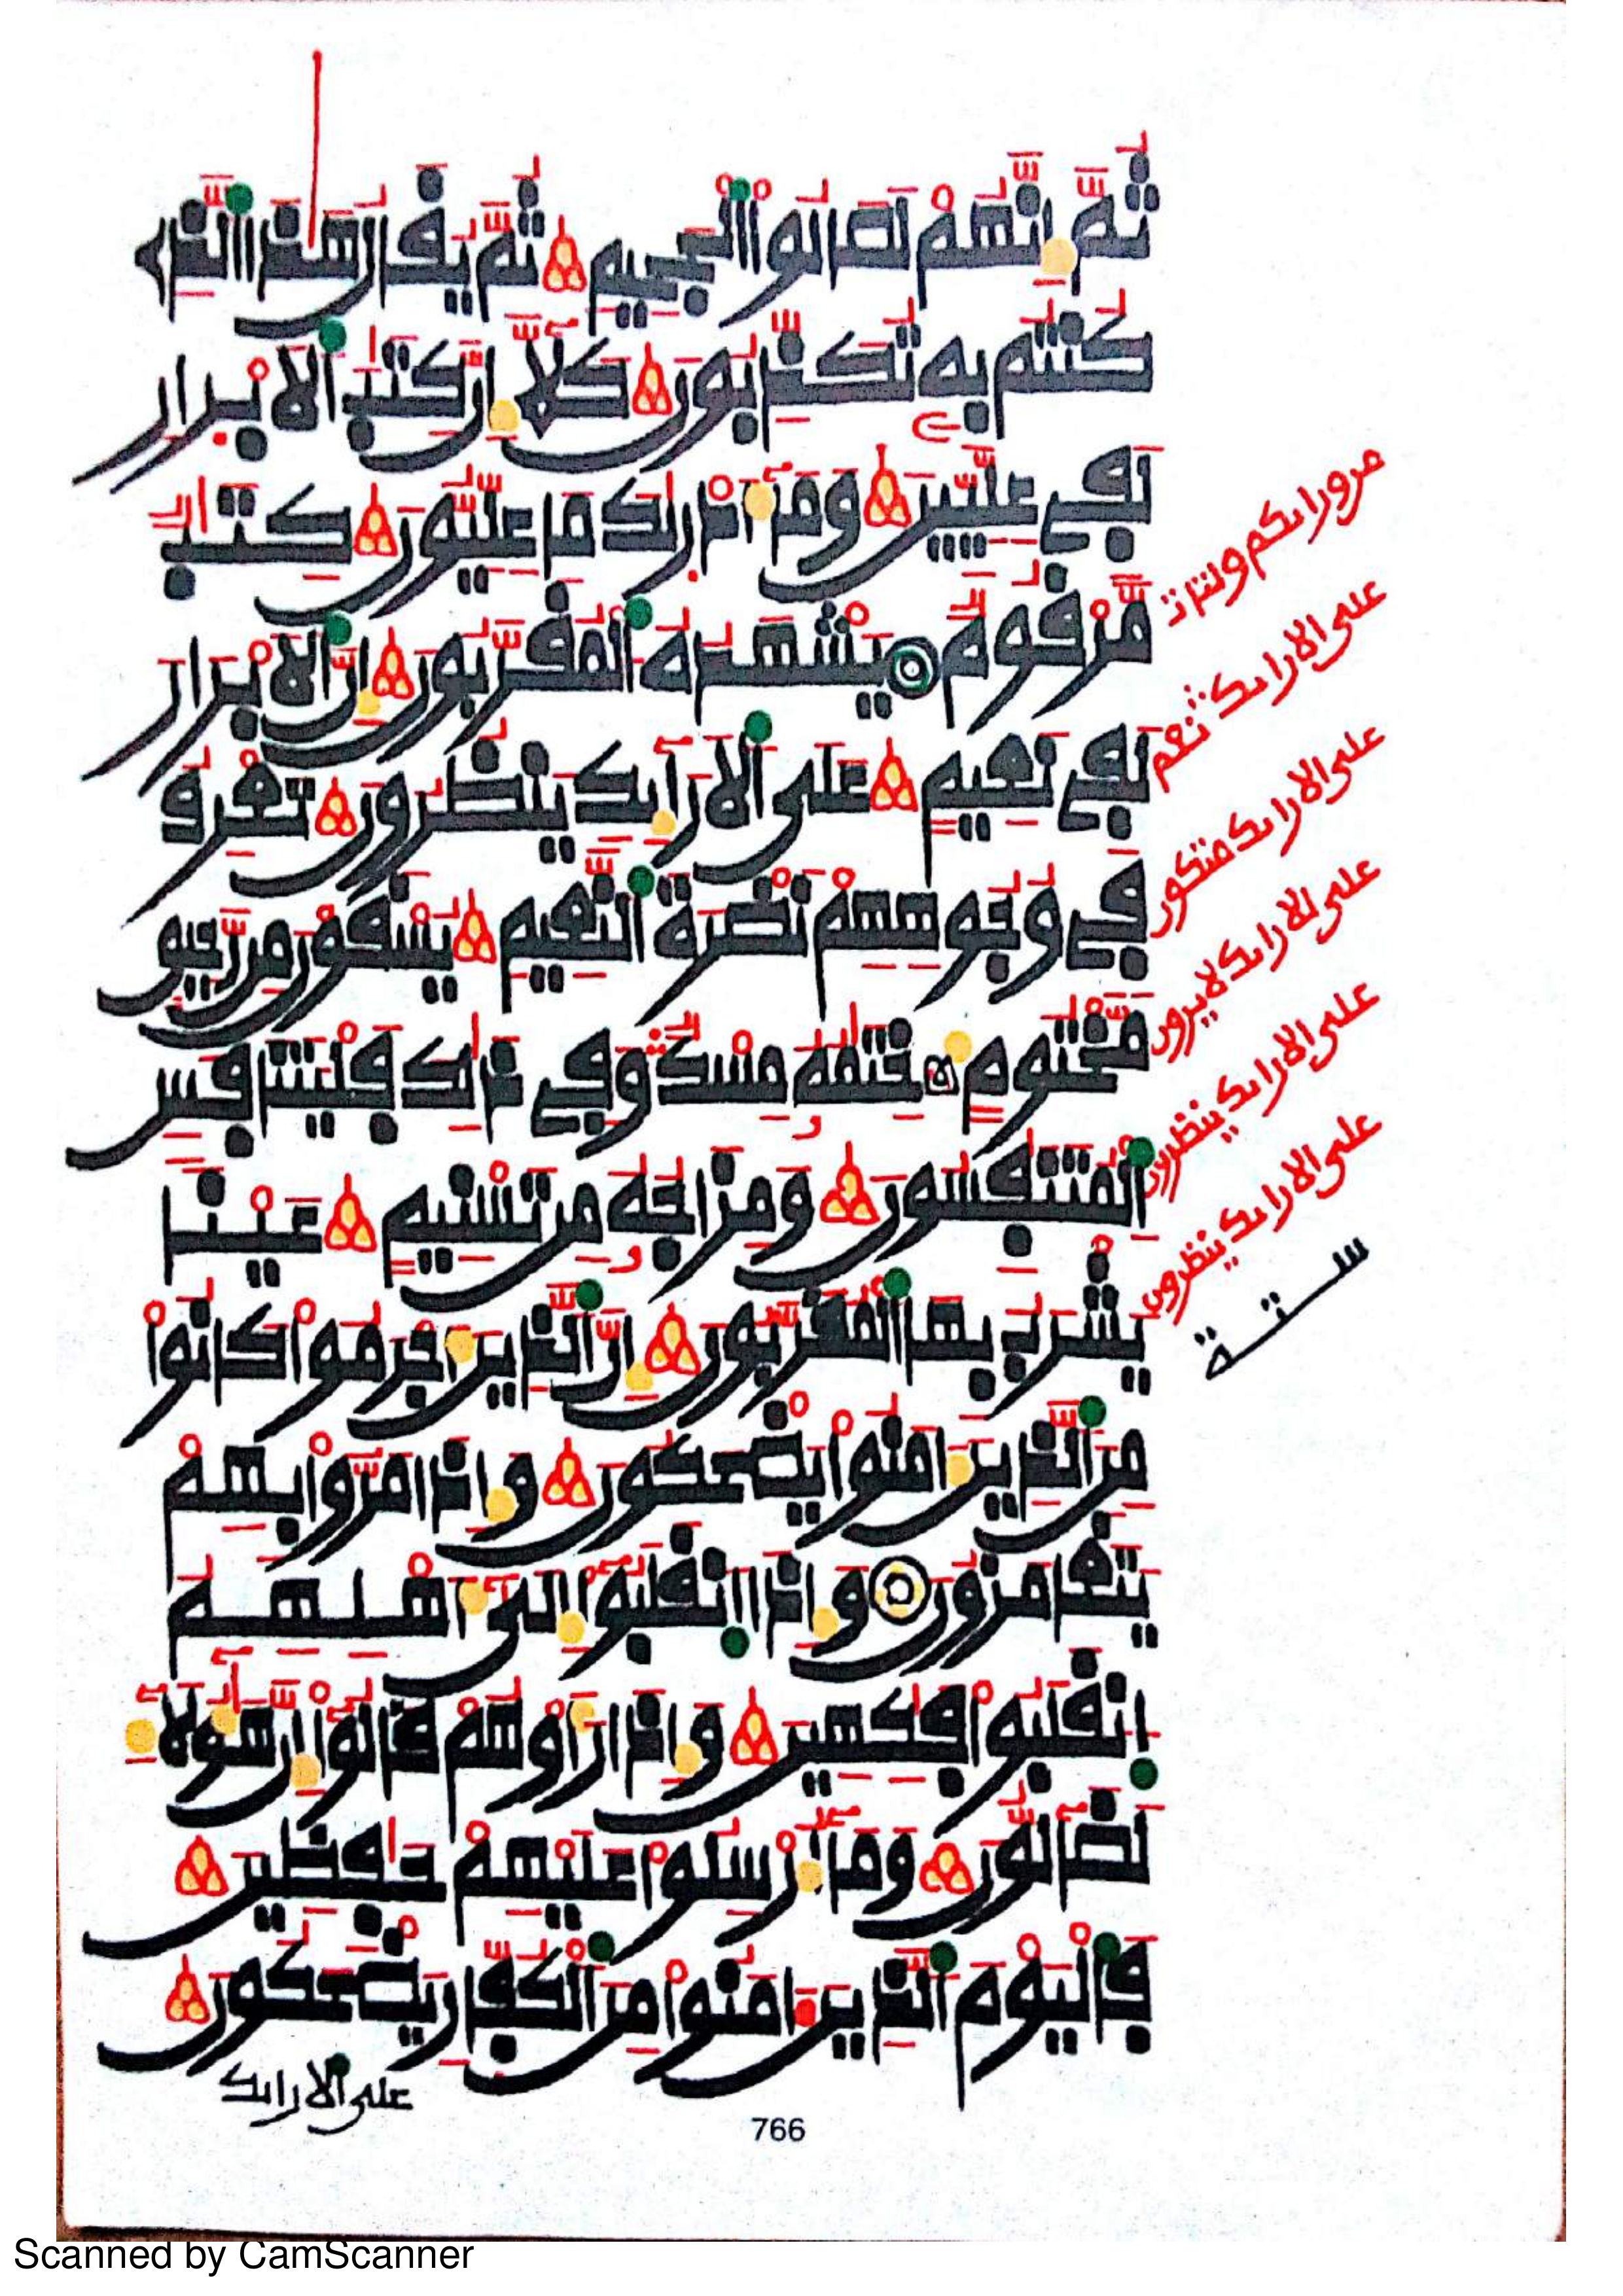 ثُمَّ إِنَّهُمْ لَصَالُوا۟ اُ۬لْجَحِيمِ ثُمَّ يُقَالُ هَٰذَا اَ۬لذِے
كُنتُم بِهِۦ تُكَذِّبُونَ كَلَّآ إِنَّ كِتَٰبَ اَ۬لَابْرِارِ
لَفِے عِلِّيِّينَ وَمَآ أَدْر۪يٰكَ مَا عِلِّيُّونَ كِتَٰبٌ
مَّرْقُومٌ يَشْهَدُهُ اُ۬لْمُقَرَّبُونَ إِنَّ اَ۬لَابْرَارَ
لَفِے نَعِيمٍ عَلَى اَ۬لَارَآئِكِ يَنظُرُونَ تَعْرِفُ
فِے وُجُوهِهِمْ نَضْرَةَ اَ۬لنَّعِيمِ يُسْقَوْنَ مِن رَّحِيقٍ
مَّخْتُومٍ خِتَٰمُهُۥ مِسْكٌ وَفِے ذَٰلِكَ فَلْيَتَنَافَسِ
اِ۬لْمُتَنَٰفِسُونَ وَمِزَاجُهُۥ مِن تَسْنِيمٍ عَيْناً
يَشْرَبُ بِهَا اَ۬لْمُقَرَّبُونَ إِنَّ اَ۬لذِينَ أَجْرَمُوا۟ كَانُوا۟
مِنَ اَ۬لذِينَ ءَامَنُوا۟ يَضْحَكُونَ وَإِذَا مَرُّوا۟ بِهِمْ
يَتَغَامَزُونَ وَإِذَا اَ۪نقَلَبُوٓا۟ إِلَىٰٓ أَهْلِهِمُ
اُ۪نقَلَبُوا۟ فَٰكِهِينَ وَإِذَا رَأَوْهُمْ قَالُوٓا۟ إِنَّ هَٰٓؤُلَآءِ
لَضَآلُّونَ وَمَآ أُرْسِلُوا۟ عَلَيْهِمْ حَٰفِظِينَ
فَالْيَوْمَ اَ۬لذِينَ ءَامَنُوا۟ مِنَ اَ۬لْكُفِّارِ يَضْحَكُونَ
على الارايك
على الارايك نعم
على الارايك متكون
على الارايك لا يرون
على الارايك ينظرون
على الارايك ينظرون
ستة
766
Scanned by CamScanner